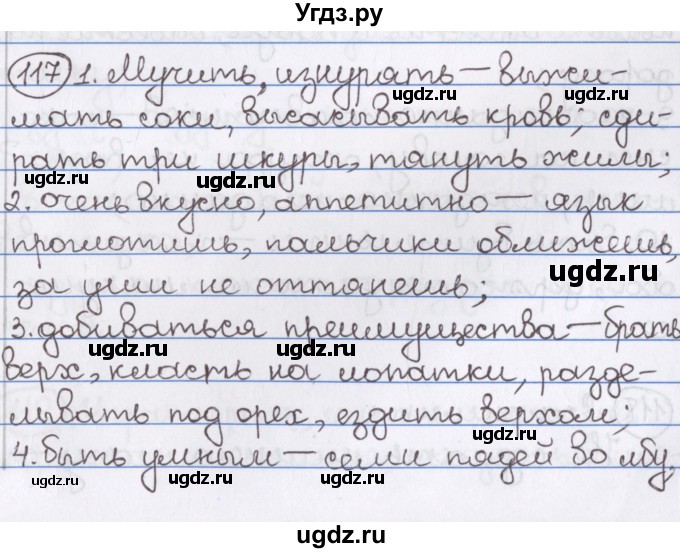 Угдз.ру
117 1. Мучить, изнурять — выжи-
мать соки, высасывать кровь; сди-
ugdz.ru ugdz.ru
рать три шкуры, тянуть жилы;
ugdz.ru ugdz.ru
2. очень вкусно, аппетитно — язык
проглотишь, пальчики оближешь,
ugdz.ru
за уши не оттянешь;
3. добиваться преимущества — брать
ugdz.ru ugdz.ru
верх, класть на лопатки, разде-
лывать под орех, ездить верхом;
ugdz.ru ugdz.ru
4. быть умным — семи пядей во лбу,
ugdz.ru ugdz.ru ugdz.ru
ugdz.ru